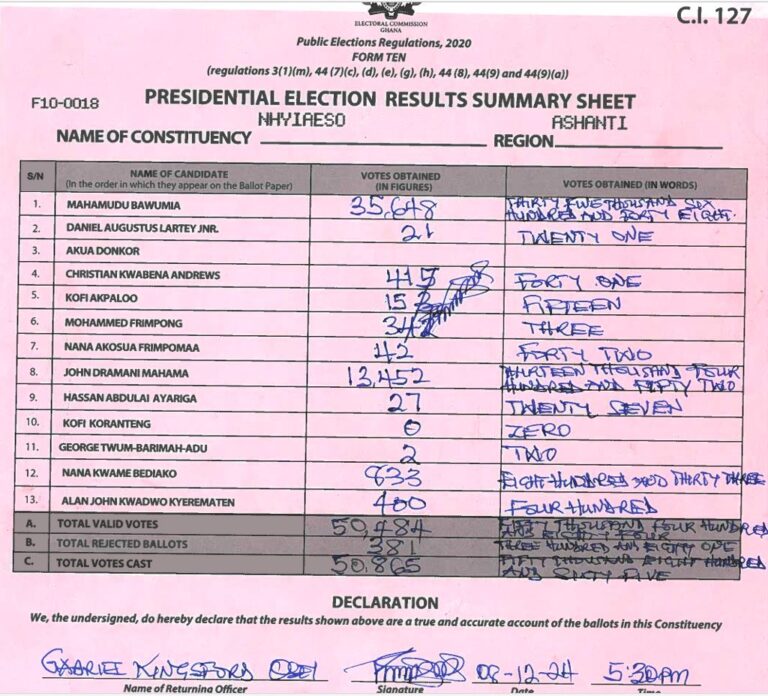 ELECTORAL COMMISSION
GHANA
C.I. 127
Public Elections Regulations, 2020
FORM TEN
(regulations 3(1)(m), 44 (7)(c), (d), (e), (g), (h), 44 (8), 44(9) and 44(9)(a))
F10-0018
PRESIDENTIAL ELECTION RESULTS SUMMARY SHEET
NAME OF CONSTITUENCY NHYIAESO REGION ASHANTI
S/N NAME OF CANDIDATE (In the order in which they appear on the Ballot Paper) VOTES OBTAINED (IN FIGURES) VOTES OBTAINED (IN WORDS)
1. MAHAMUDU BAWUMIA 35,648 THIRTY FIVE THOUSAND SIX
HUNDRED AND FORTY EIGHT.
2. DANIEL AUGUSTUS LARTEY JNR. 21 TWENTY ONE
3. AKUA DONKOR
4. CHRISTIAN KWABENA ANDREWS FORTY ONE
5. KOFI AKPALOO FIFTEEN
6. MOHAMMED FRIMPONG THREE
7. NANA AKOSUA FRIMPOMAA 42 FORTY TWO
8. JOHN DRAMANI MAHAMA 13,452 THIRTEEN THOUSAND FOUR
HUNDRED AND FIFTY TWO
9. HASSAN ABDULAI AYARIGA 27 TWENTY SEVEN
10. KOFI KORANTENG 0 ZERO
11. GEORGE TWUM-BARIMAH-ADU 2 TWO
12. NANA KWAME BEDIAKO 833 EIGHT HUNDRED AND THIRTY THREE
13. ALAN JOHN KWADWO KYEREMATEN 400 FOUR HUNDRED
A. TOTAL VALID VOTES 50,484 FIFTY THOUSAND FOUR HUNDRED
AND EIGHTY FOUR
B. TOTAL REJECTED BALLOTS 381 THREE HUNDRED AND EIGHTY ONE
C. TOTAL VOTES CAST 50,865 FIFTY THOUSAND EIGHT HUNDRED
AND SIXTY FIVE
DECLARATION
We, the undersigned, do hereby declare that the results shown above are a true and accurate account of the ballots in this Constituency
KINGSFORD 08-12-24 5:30PM
Name of Returning Officer Signature Date Time